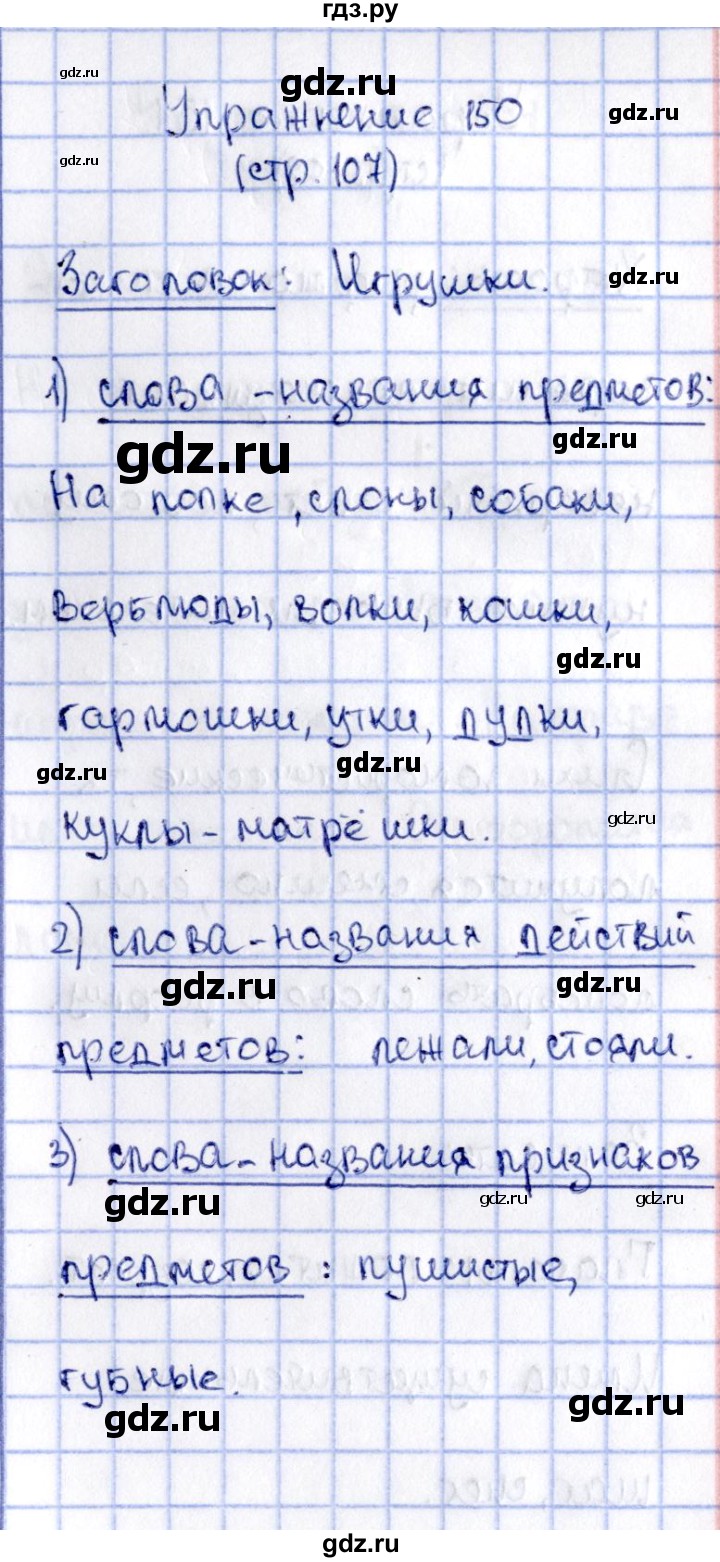 гдз.ру
gdz.ru
gdz.ru
Упражнение 150
gdz.ru
gdz.ru
(стр. 107)
Заголовок: Игрушки.
gdz.ru
1) слова-названия предметов:
gdz.ru
gdz.ru
На полке, слоны, собаки,
верблюды, волки, кошки,
gdz.ru
гармошки, утки, дудки,
gdz.ru
gdz.ru
куклы-матрёшки.
gdz.ru
2) слова-названия действий
gdz.ru
gdz.ru
предметов: лежали, стояли.
3) слова-названия признаков
gdz.ru
gdz.ru
gdz.ru
предметов: пушистые,
губные.
gdz.ru
gdz.ru
gdz.ru